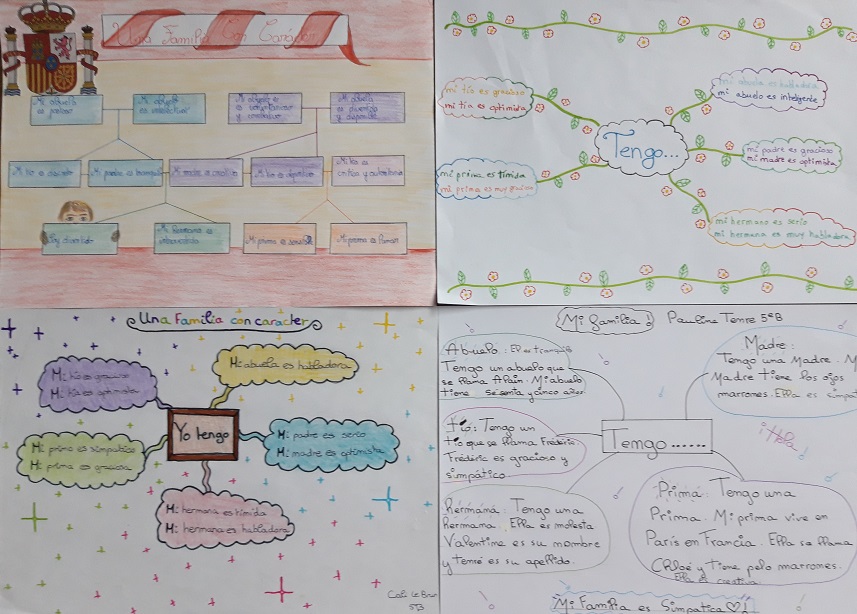 Una Familia Con Carácter
Mi abuela
es
Mi abuelo
es intelectual
Mi abuelo
es
y
Mi abuela
es divertida
y
Mi tío es
Mi padre es tranquilo
Mi madre es
Mi tío es deportivo
Mi tía es
crítica y autoritaria
Soy divertido
Mi hermana es
introvertida
Mi primo es sociable
Mi primo es
mi tío es gracioso
mi tía es optimista
mi abuela es habladora
mi abuelo es inteligente
Tengo...
mi padre es gracioso
mi madre es optimista
mi prima es tímida
mi prima es muy graciosa
mi hermano es serio
mi hermana es muy habladora
Una Familia con caracter
Mi tío es gracioso
Mi tía es optimista
Mi abuela es habladora
Yo tengo
Mi primo es simpatico
Mi prima es graciosa
Mi padre es serio
Mi madre es optimista
Mi hermana es tímida
Mi hermana es habladora
5B
Mi familia!
Pauline 5eB
Abuelo: El es tranquilo
Tengo un abuelo que
se llama Alain. Mi abuelo
tiene sesenta y cinco años
Madre:
Tengo una Madre. M
Madre tiene los ojos
marrones. Ella es simpat
Tío: Tengo un
tío que se llama Frédéric.
Frédéric es gracioso y
simpático
Tengo......
¡Hola!
Hermana: Tengo una
hermama. Ella es molesta
Valentine es su nombre
y es su apellido.
Prima: Tengo una
Prima. Mi prima vive en
París en Francia. Ella se llama
Chloé y tiene pelo marrones.
Ella es creativa
Mi Familia es Simpatica